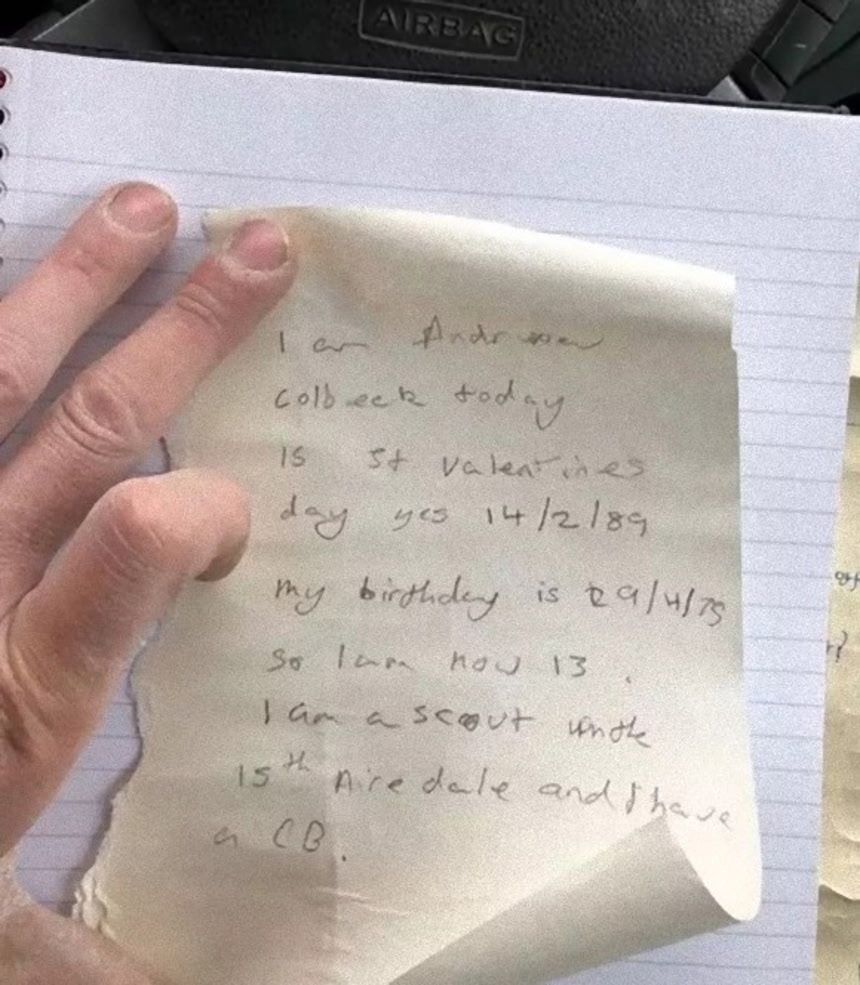 AIRBAG
I am Andrew
colbeck today
is st valentines
day yes 14/2/89
my birthday is 29/4/75
so I am now 13.
I am a scout
15th Airedale and I have
a CB.